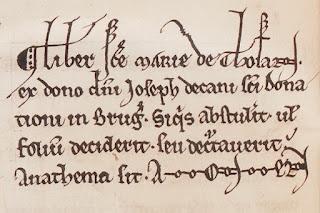 Liber sce marie de Thosan.
ex dono dni Joseph decani sci dona
tiani in Brug. Siqs abstulit. ul
folium deciderit. seu decurtaverit.
Anathema sit. A